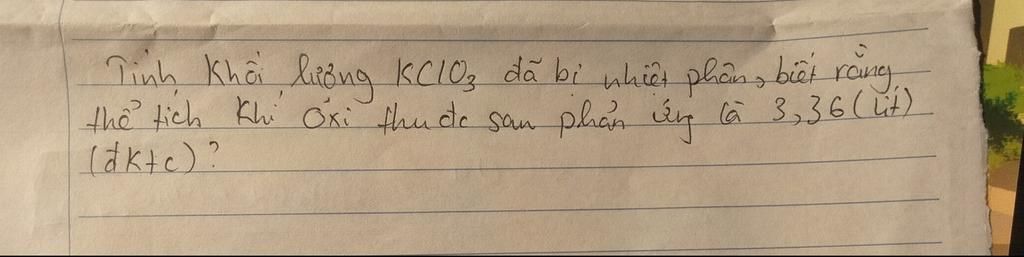 Tính khối lượng KClO3 đã bị nhiệt phân, biết rằng
thể tích khí Oxi thu đc sau phản ứng là 3,36 (lít)
(đktc)?